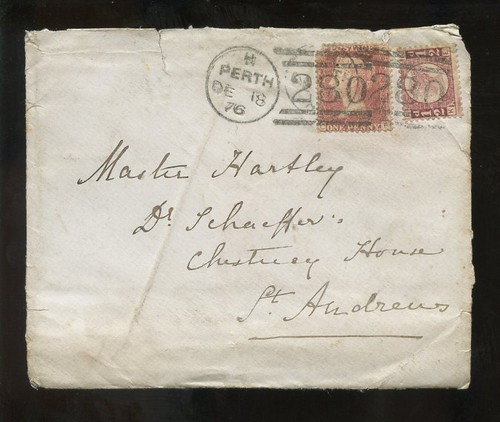 H
PERTH
DE 18
76
280 280
ONE PENNY
Master Hartley
Dr Schaeffer's
Chestney House
St. Andrews